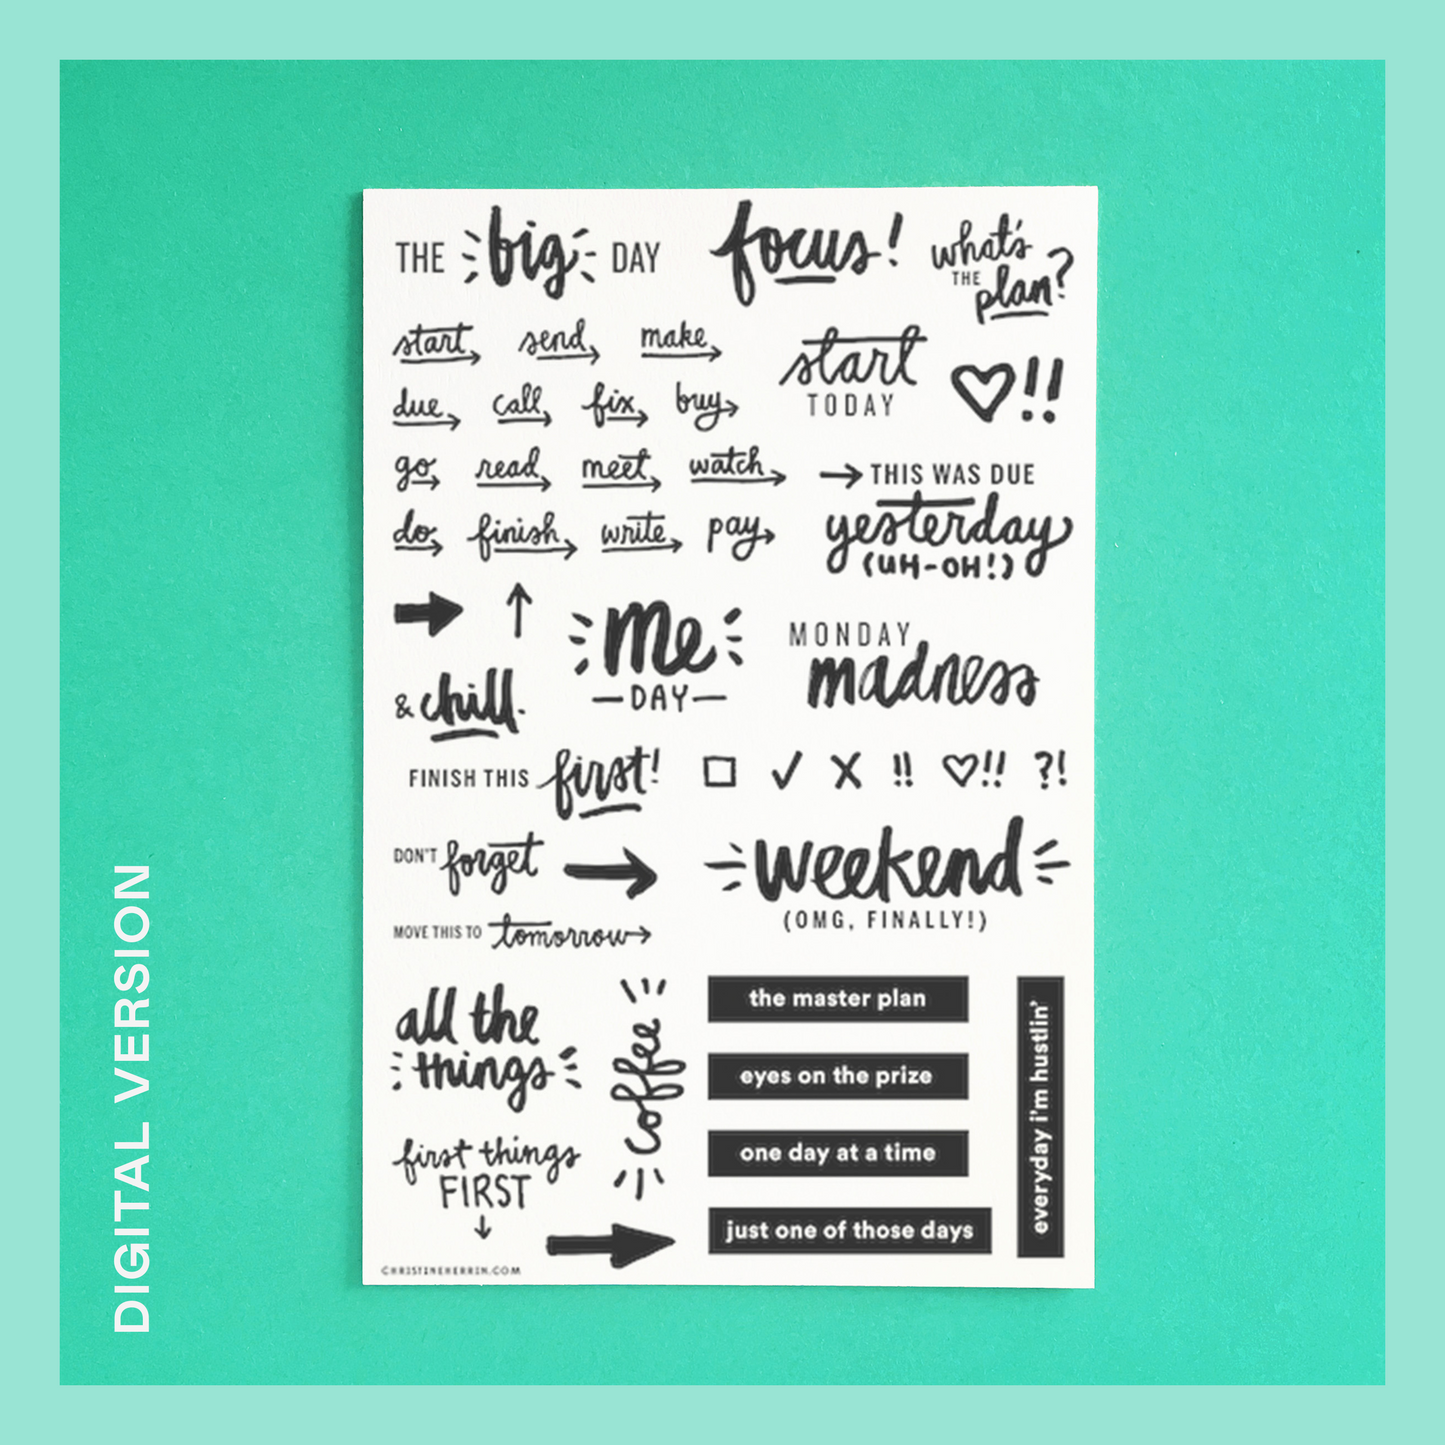 THE big DAY
focus!
what's
THE plan?
start send make
start
TODAY
due call fix buy
!!
go read meet watch
THIS WAS DUE
yesterday
(UH-OH!)
do finish write pay
me
DAY
MONDAY
madness
& chill.
FINISH THIS first!
!! !! ?!
DON'T forget
weekend
(OMG, FINALLY!)
MOVE THIS TO tomorrow
all the
things
coffee
the master plan
eyes on the prize
one day at a time
just one of those days
everyday i'm hustlin'
first things
FIRST
CHRISTINEHERRIN.COM
DIGITAL VERSION